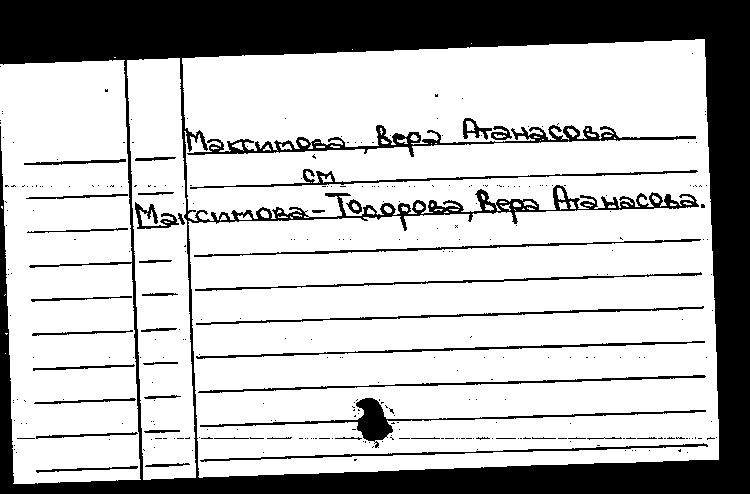 Максимова, Вера Атанасова
см
Максимова-Тодорова, Вера Атанасова.